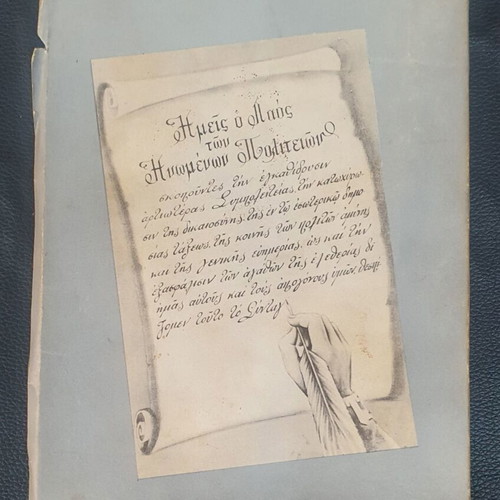 Ἡμεῖς ὁ Λαός
τῶν
Ἡνωμένων Πολιτειῶν
σκοποῦντες τὴν ἐγκαθίδρυσιν
ἀρτιωτέρας Συμπολιτείας, τὴν κατοχύρω
σιν τῆς δικαιοσύνης, τῆς ἐν τῷ ἐσωτερικῷ δημο
σίας τάξεως, τῆς κοινῆς τῶν πολιτῶν ἀμύνης
καὶ τῆς γενικῆς εὐημερίας, ὡς καὶ τὴν
ἐξασφάλισιν τῶν ἀγαθῶν τῆς ἐλευθερίας δι'
ἡμᾶς αὐτοὺς καὶ τοὺς ἀπογόνους ἡμῶν, θεσπί
ζομεν τοῦτο τὸ Σύνταγ